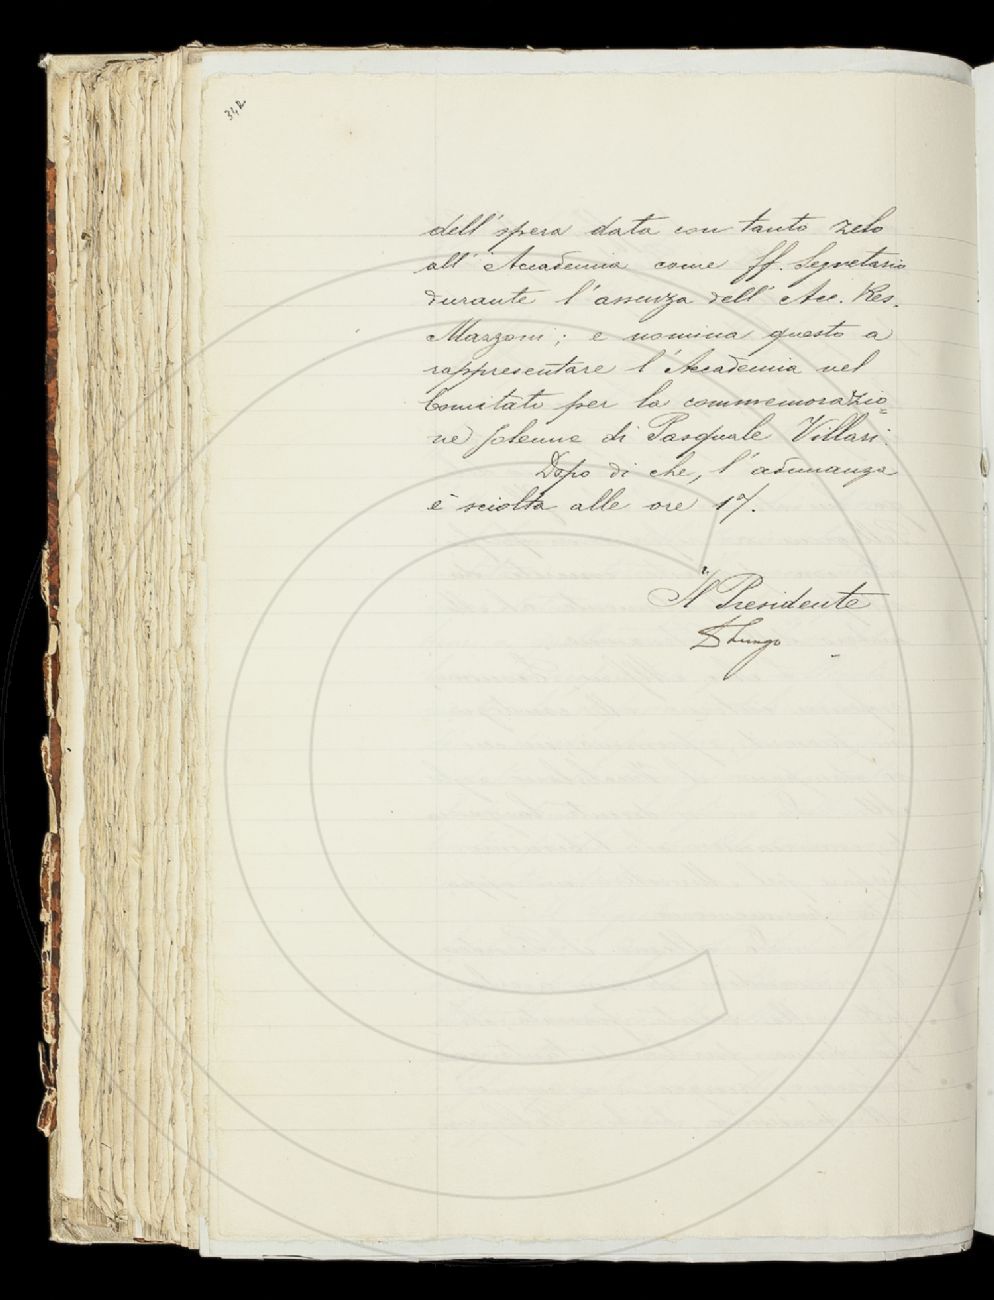 342
dell'opera data con tanto zelo
all'Accademia come ff. Segretario
durante l'assenza dell'Acc. Res.
Mazzoni; e nomina questo a
rappresentare l'Accademia nel
Comitato per la commemorazio=
ne solenne di Pasquale Villari.
Dopo di che, l'adunanza
è sciolta alle ore 17.
Il Presidente